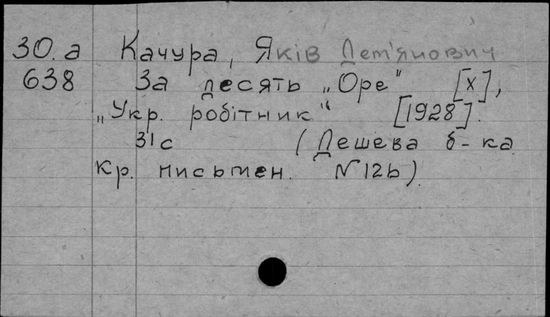 30.а Качура, Яків Дем'янович
638 За десять „Оре" [х],
„Укр. робітник" [1928].
31с (Дешева б-ка
кр. письмен. №12b).